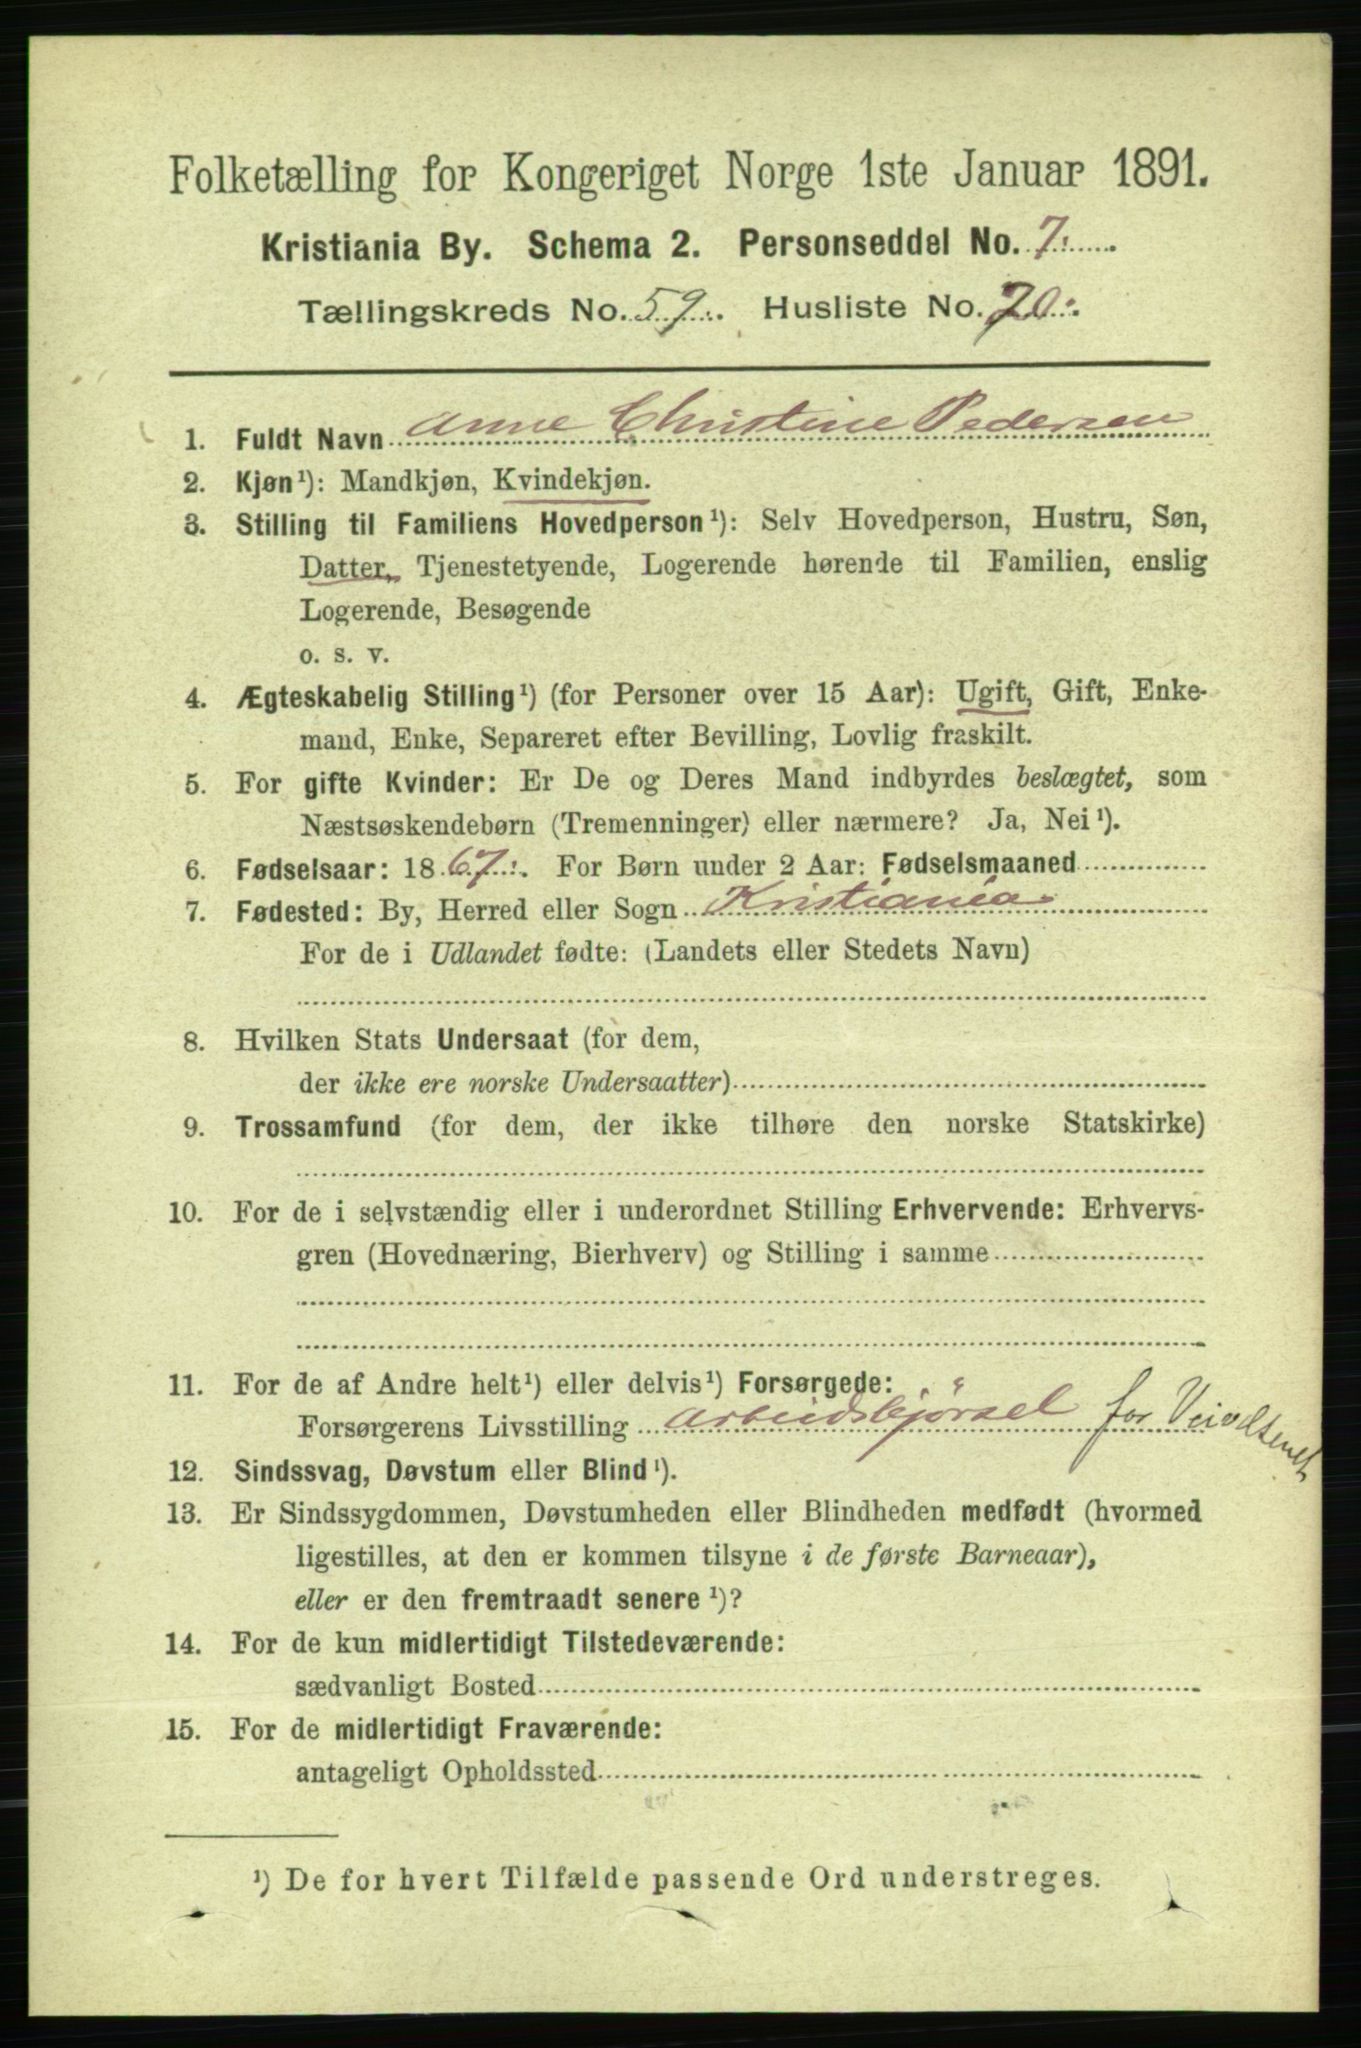 Folketælling for Kongeriget Norge 1ste Januar 1891.
Kristiania By. Schema 2. Personseddel No. 7.
Tællingskreds No. 59. Husliste No. 70.
1. Fuldt Navn Anne Christine Pedersen
2. Kjøn¹): Mandkjøn, Kvindekjøn.
3. Stilling til Familiens Hovedperson¹): Selv Hovedperson, Hustru, Søn,
Datter, Tjenestetyende, Logerende hørende til Familien, enslig
Logerende, Besøgende
o. s. v.
4. Ægteskabelig Stilling¹) (for Personer over 15 Aar): Ugift, Gift, Enke-
mand, Enke, Separeret efter Bevilling, Lovlig fraskilt.
5. For gifte Kvinder: Er De og Deres Mand indbyrdes beslægtet, som
Næstsøskendebørn (Tremenninger) eller nærmere? Ja, Nei¹).
6. Fødselsaar: 1867. For Børn under 2 Aar: Fødselsmaaned
7. Fødested: By, Herred eller Sogn Kristiania
For de i Udlandet fødte: (Landets eller Stedets Navn)
8. Hvilken Stats Undersaat (for dem,
der ikke ere norske Undersaatter)
9. Trossamfund (for dem, der ikke tilhøre den norske Statskirke)
10. For de i selvstændig eller i underordnet Stilling Erhvervende: Erhvervs-
gren (Hovednæring, Bierhverv) og Stilling i samme
11. For de af Andre helt¹) eller delvis¹) Forsørgede:
Forsørgerens Livsstilling Arbeidskjørsel for
12. Sindssvag, Døvstum eller Blind¹).
13. Er Sindssygdommen, Døvstumheden eller Blindheden medfødt (hvormed
ligestilles, at den er kommen tilsyne i de første Barneaar),
eller er den fremtraadt senere¹)?
14. For de kun midlertidigt Tilstedeværende:
sædvanligt Bosted
15. For de midlertidigt Fraværende:
antageligt Opholdssted
¹) De for hvert Tilfælde passende Ord understreges.